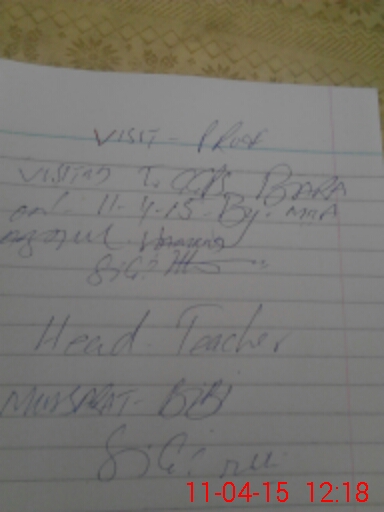 VISIT - PROOF
VISITED T. GGPS BARA
on! 11-4-15- By. MEA
Sig:
Head Teacher
MUSARAT - BIBI
Sig:
11-04-15 12:18